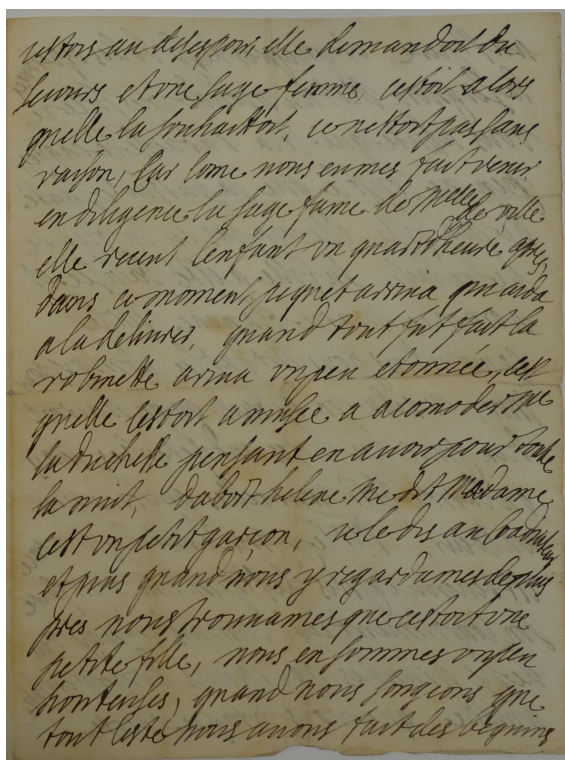 iestois au desespoir, elle demandoit du
secours et vne sage femme cestoit alors
quelle la souhaittoit, ce nestoit pas sans
raison, car come nous eumes fait venir
en diligence la sage fame de Melle de ville
elle receut lenfant vn quart dheure apres
dans ce moment pequet arriua qui aida
a la deliurer, quand tout fut fait la
robinette ariua vn peu etonnee, cest
quelle sestoit amusee a acomoder Me
la duchesse pensant en auoir pour toute
la nuit, dabort helene me dit Madame
cest vn petit garçon, ie le dis au Coadiuteur
et puis quand nous y regardames de plus
pres nous trouuames que cestoit vne
petite fille, nous en sommes vn peu
honteuses, quand nous songeons que
tout lesté nous auons fait des beguins